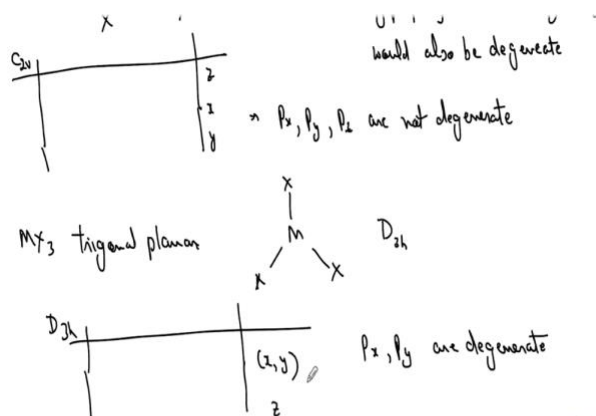 X
would also be degenerate
C2v
z
x
y
Px, Py, Pz are not degenerate
MX3 trigonal planar
X
M
X X
D3h
D3h
(x,y)
z
Px, Py are degenerate